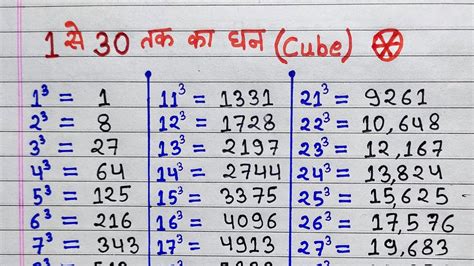 1 से 30 तक का घन (Cube)
1³ = 1 11³ = 1331 21³ = 9261
2³ = 8 12³ = 1728 22³ = 10,648
3³ = 27 13³ = 2197 23³ = 12,167
4³ = 64 14³ = 2744 24³ = 13,824
5³ = 125 15³ = 3375 25³ = 15,625
6³ = 216 16³ = 4096 26³ = 17,576
7³ = 343 17³ = 4913 27³ = 19,683